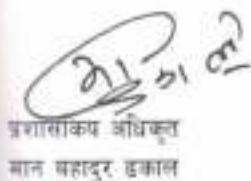 प्रशासकिय अधिकृत
मान बहादुर ढकाल